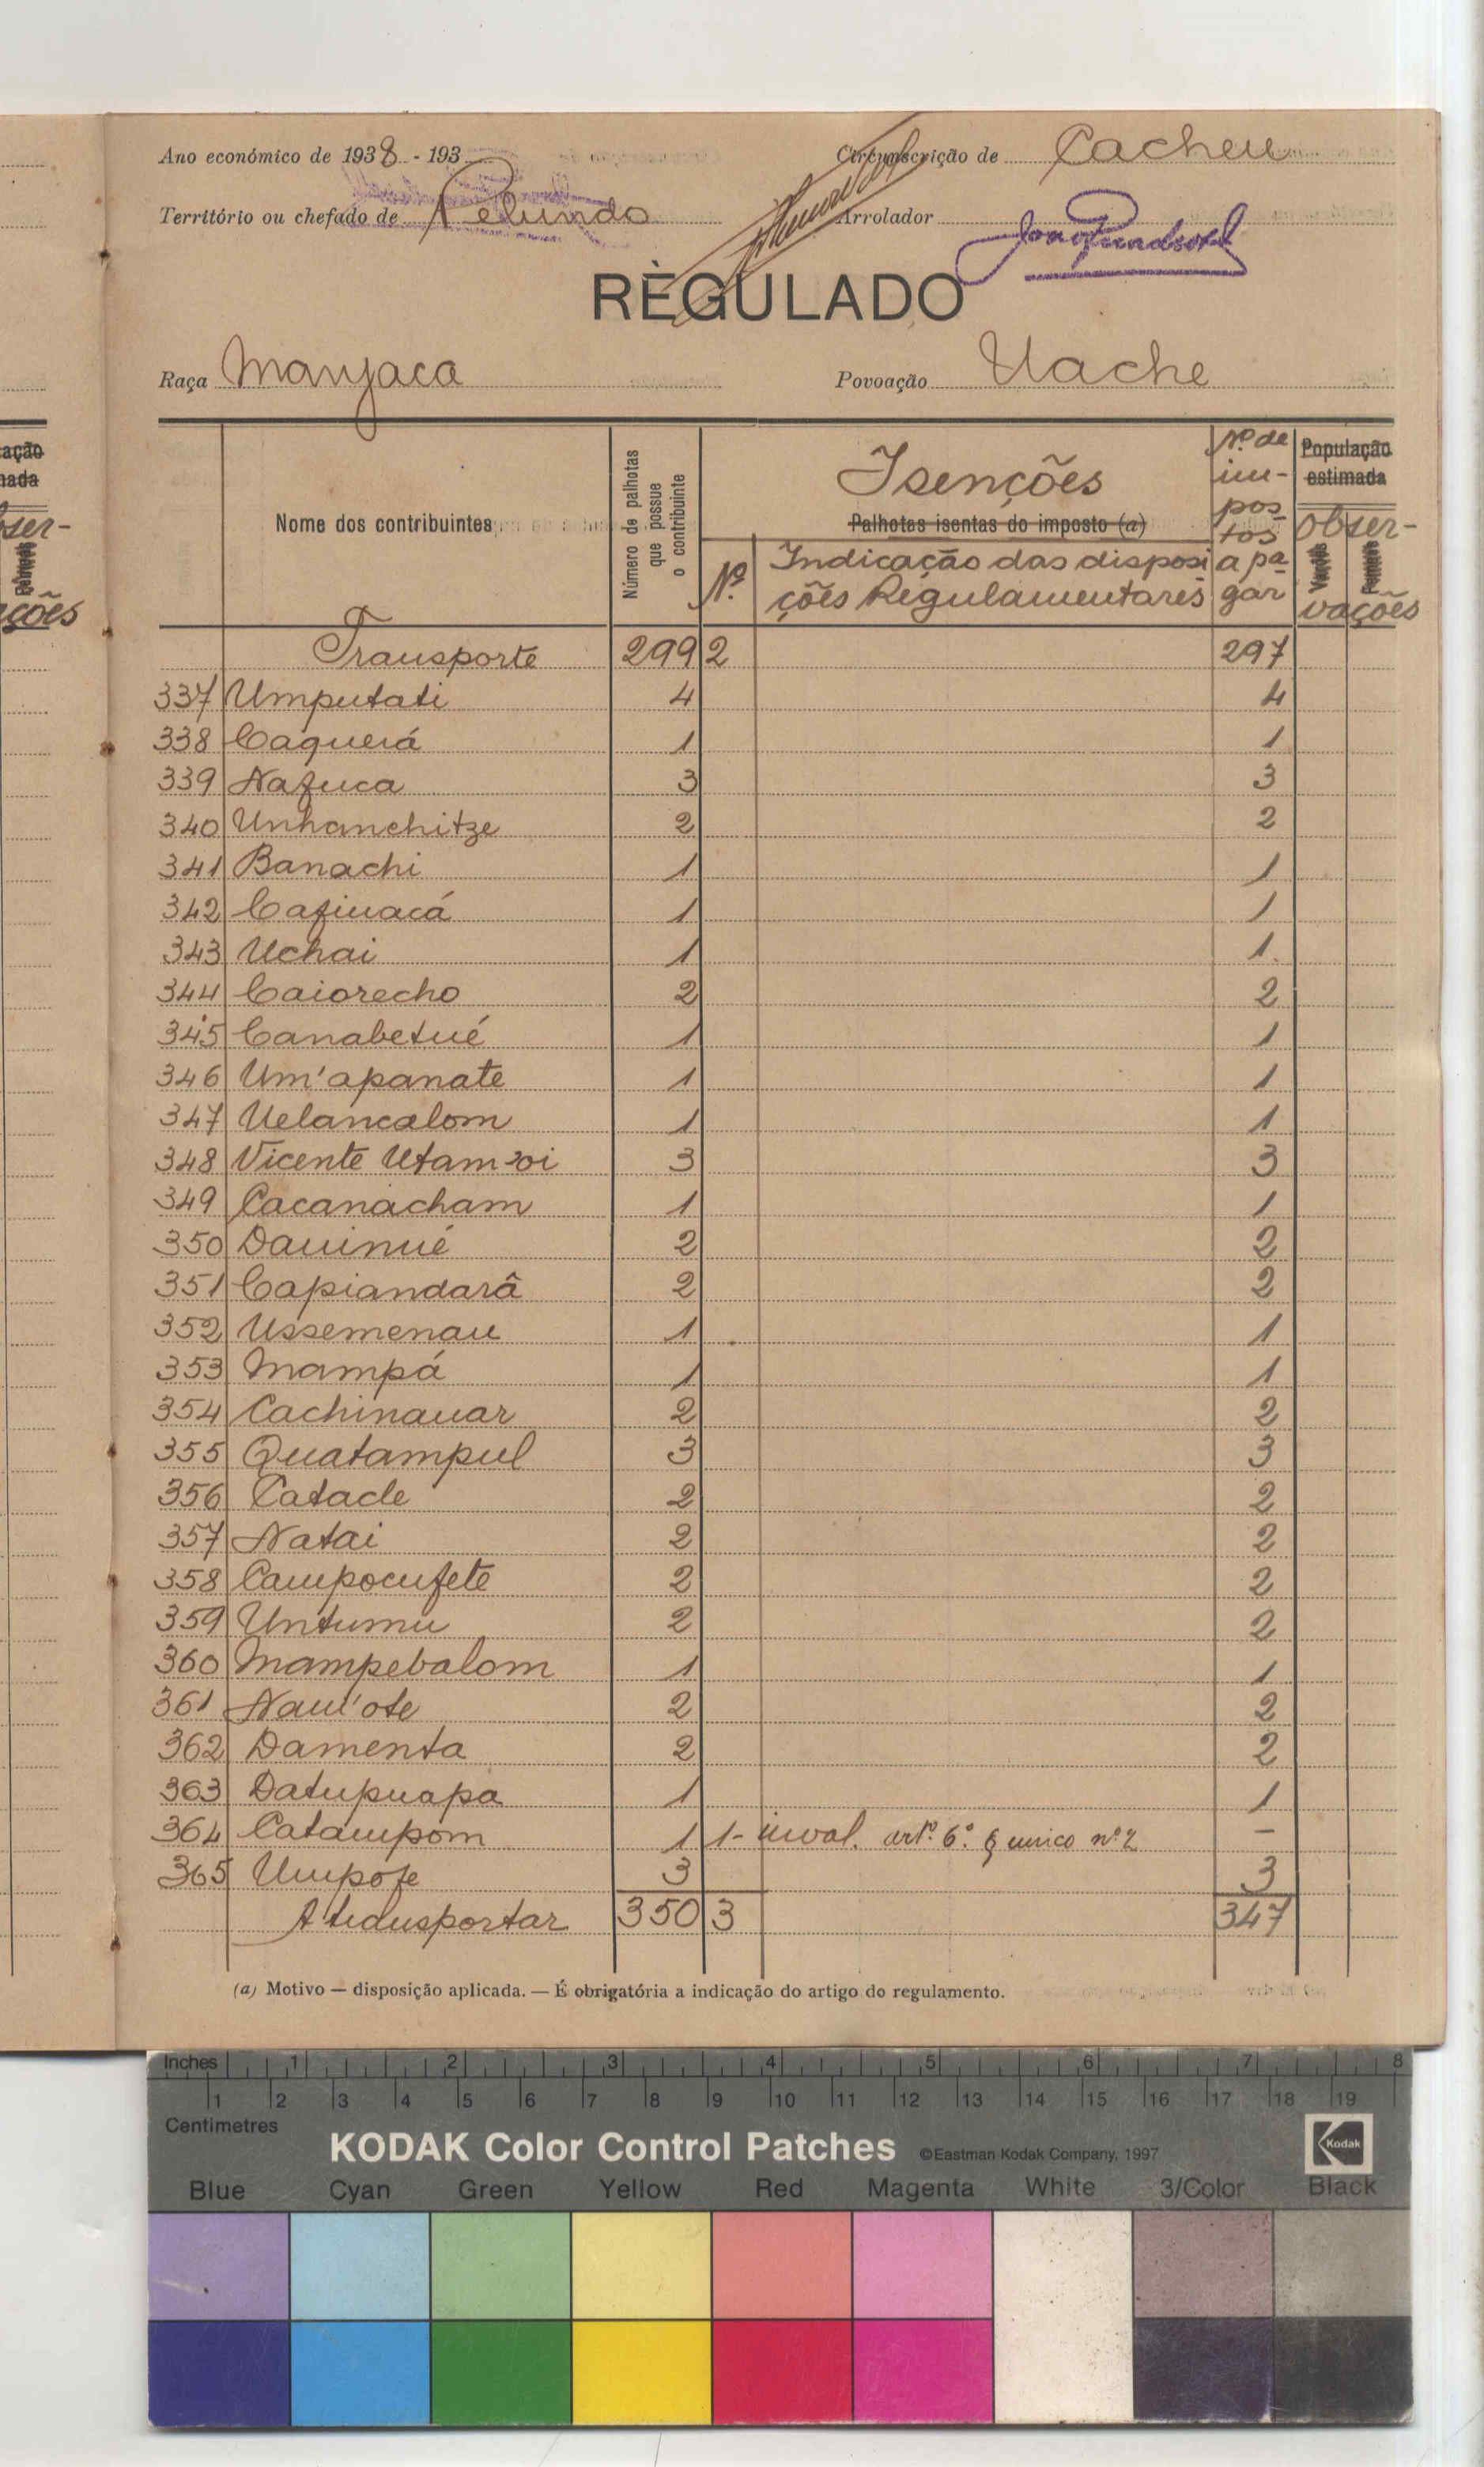 Ano económico de 1938 - 193
Circunscrição de Cacheu
Território ou chefado de Pelundo
Arrolador
RÈGULADO
Raça Manjaca
Povoação Uache
Nome dos contribuintes
Número de palhotas que possue o contribuinte
Isenções
Palhotas isentas do imposto (a)
Nº
Indicação das disposições Regulamentares
Nº de impostos a pagar
População estimada
Observações
Transporte 299 2 297
337 Umputati 4 4
338 Caquerá 1 1
339 Nafuca 3 3
340 Unhanchitze 2 2
341 Banachi 1 1
342 Cafiuacá 1 1
343 Uchai 1 1
344 Caiorecho 2 2
345 Canabetué 1 1
346 Um'apanate 1 1
347 Uelancalom 1 1
348 Vicente 3 3
349 Cacanacham 1 1
350 Dauinué 2 2
351 Capiandarâ 2 2
352 Ussemenau 1 1
353 Mampá 1 1
354 Cachinauar 2 2
355 Quatampul 3 3
356 Catacle 2 2
357 Natai 2 2
358 Campocufete 2 2
359 Untumu 2 2
360 Mampebalom 1 1
361 Nau'ote 2 2
362 Damenta 2 2
363 Datupuapa 1 1
364 Catampom 1 1- inval. artº. 6º. § unico nº 2 -
365 Umpofe 3 3
A transportar 350 3 347
(a) Motivo — disposição aplicada. — É obrigatória a indicação do artigo do regulamento.
ação
nada
ser-
ções
Inches 1 2 3 4 5 6 7 8
1 2 3 4 5 6 7 8 9 10 11 12 13 14 15 16 17 18 19
Centimetres
KODAK Color Control Patches ©Eastman Kodak Company, 1997 Kodak
Blue Cyan Green Yellow Red Magenta White 3/Color Black